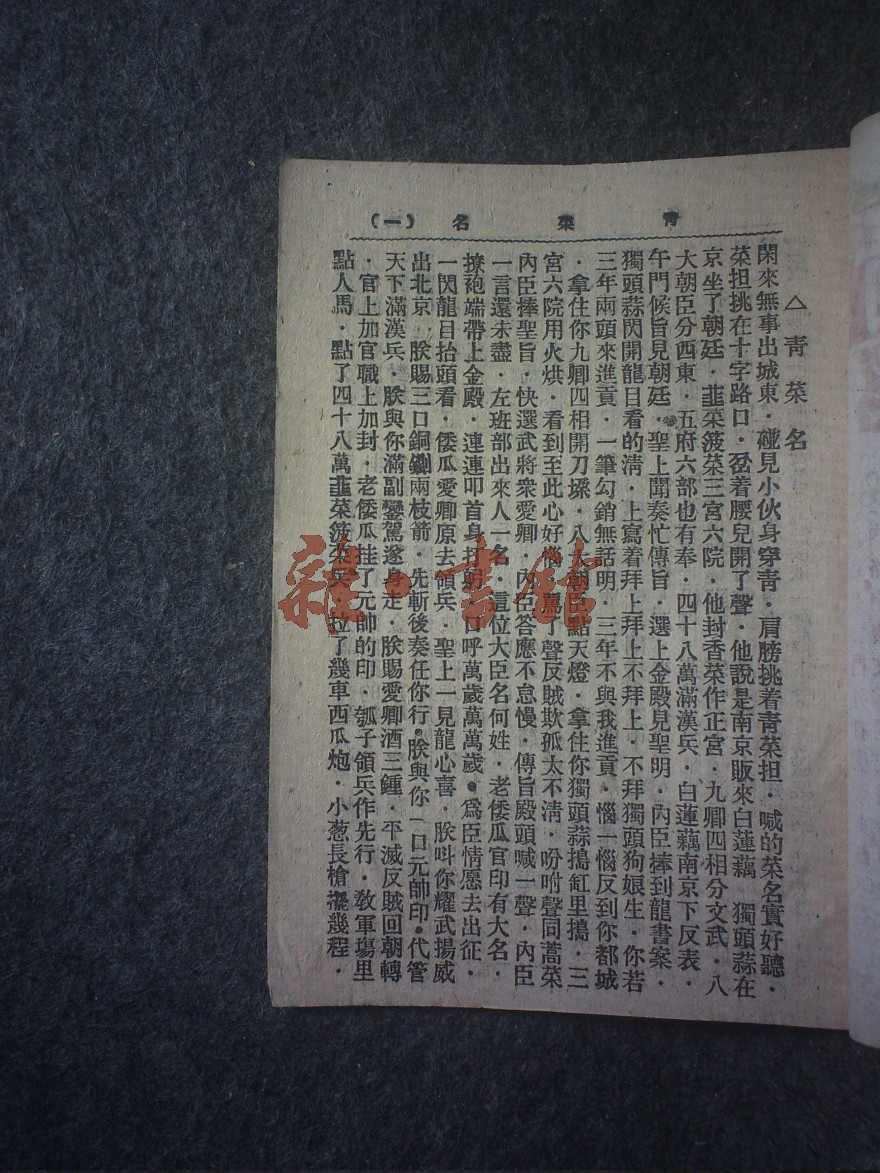 青菜名 （一）
△青菜名
閑來無事出城東．碰見小伙身穿青．肩膀挑着青菜担．喊的菜名實好聽．
菜担挑在十字路口．岔着腰兒開了聲．他說是南京販來白蓮藕 獨頭蒜在
京坐了朝廷．韮菜菠菜三宮六院．他封香菜作正宮．九卿四相分文武．八
大朝臣分西東．五府六部也有奉．四十八萬滿漢兵．白蓮藕南京下反表．
午門候旨見朝廷．聖上聞奏忙傳旨．選上金殿見聖明．內臣捧到龍書案．
獨頭蒜閃開龍目看的清．上寫着拜上拜上不拜上．不拜獨頭狗娘生．你若
三年兩頭來進貢．一筆勾銷無話明．三年不與我進貢．惱一惱反到你都城
．拿住你九卿四相開刀墂．八大朝臣點天燈．拿住你獨頭蒜搗缸里搗．三
宮六院用火烘．看到至此心好惱．罵了聲反賊欺孤太不清．吩咐聲同蒿菜
內臣捧聖旨．快選武將衆愛卿．內臣答應不怠慢．傳旨殿頭喊一聲．內臣
一言還未盡．左班部出來人一名．這位大臣名何姓．老倭瓜官印有大名．
撩袍端帶上金殿．連連叩首身打躬．口呼萬歲萬萬歲．爲臣情愿去出征．
一閃龍目抬頭看．倭瓜愛卿原去領兵．聖上一見龍心喜．朕叫你耀武揚威
出北京 朕賜三口銅鍘兩枝箭．先斬後奏任你行．朕與你一口元帥印．代管
天下滿漢兵．朕與你滿副鑾駕遂身走．朕賜愛卿酒三鍾．平滅反賊回朝轉
．官上加官職上加封．老倭瓜挂了元帥的印．瓠子領兵作先行．敎軍塲里
點人馬．點了四十八萬韮菜菠菜兵．拉了幾車西瓜炮．小葱長槍擺幾程．
雜·書館